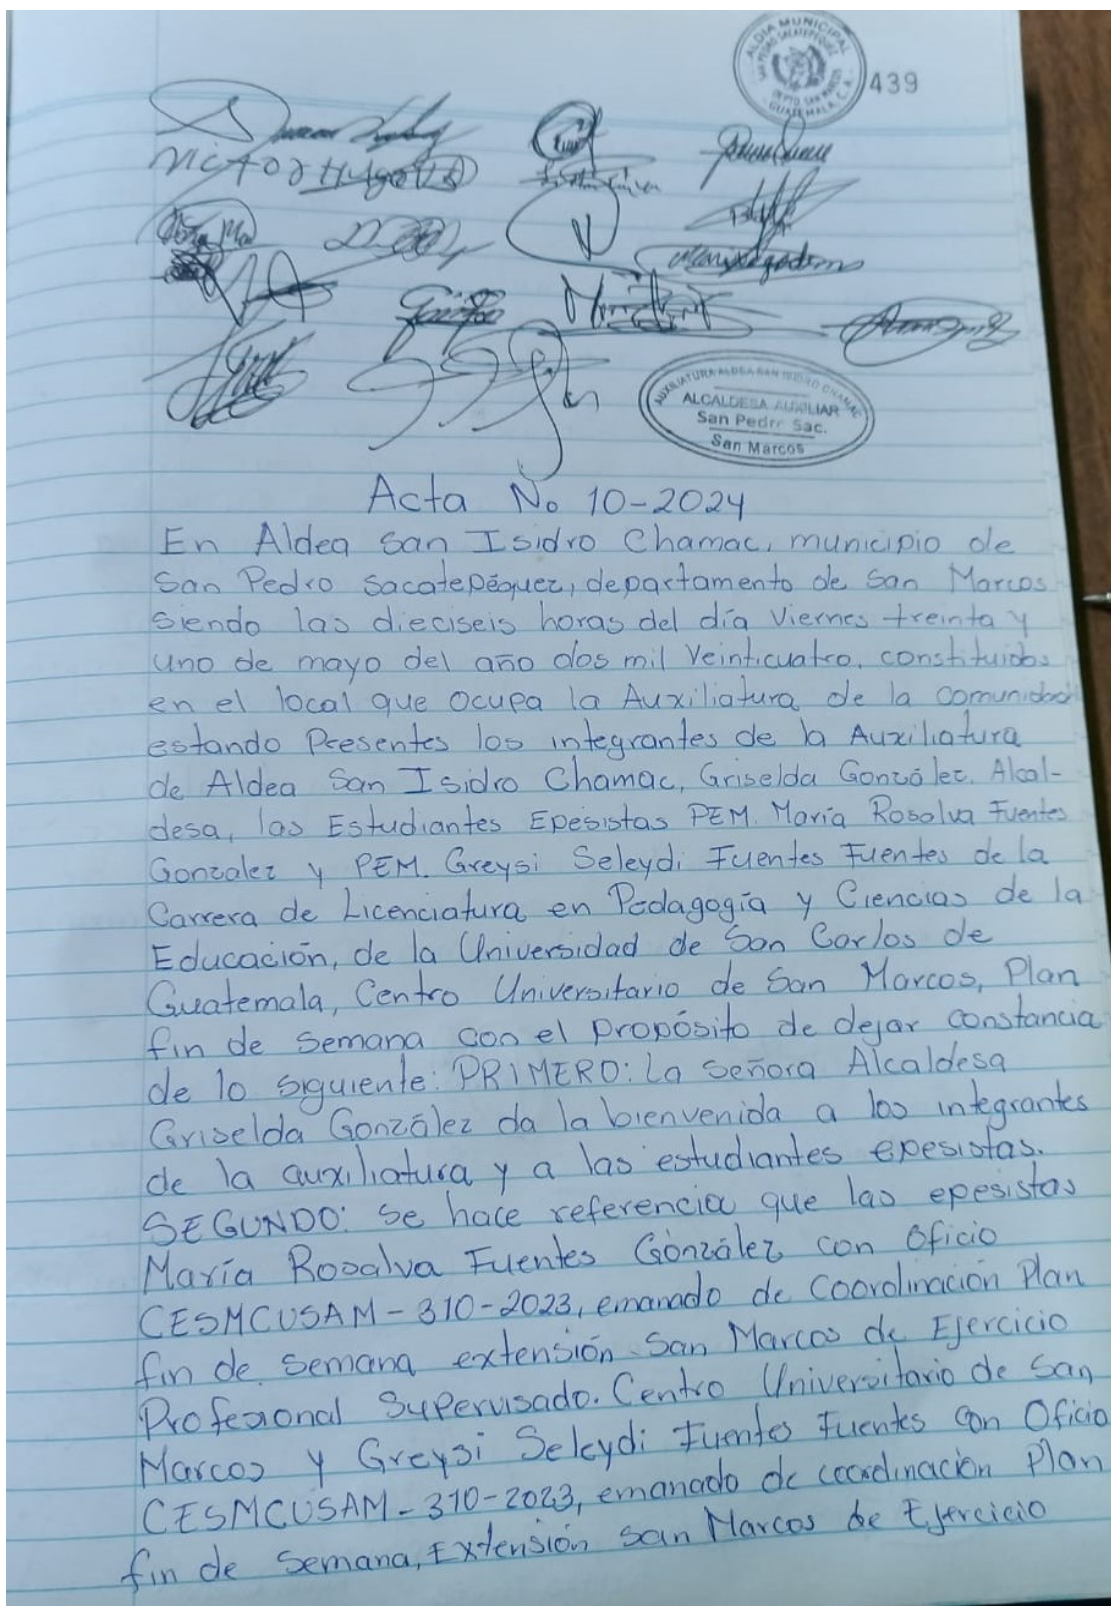 ALDIA MUNICIPAL
SAN PEDRO SACATEPEQUEZ
DEPTO. SAN MARCOS
GUATEMALA, C.A.
439
Victor Hugo
AUXILIATURA ALDEA SAN ISIDRO CHAMAC
ALCALDESA AUXILIAR
San Pedro Sac.
San Marcos
Acta No 10-2024
En Aldea San Isidro Chamac, municipio de
San Pedro Sacatepéquez, departamento de San Marcos
siendo las dieciseis horas del día Viernes treinta y
uno de mayo del año dos mil veinticuatro, constituidos
en el local que ocupa la Auxiliatura de la comunidad
estando Presentes los integrantes de la Auxiliatura
de Aldea San Isidro Chamac, Griselda González. Alcal-
desa, las Estudiantes Epesistas PEM. María Rosalva Fuentes
Gonzalez y PEM. Greysi Seleydi Fuentes Fuentes de la
Carrera de Licenciatura en Pedagogía y Ciencias de la
Educación, de la Universidad de San Carlos de
Guatemala, Centro Universitario de San Marcos, Plan
fin de semana con el propósito de dejar constancia
de lo siguiente: PRIMERO: La señora Alcaldesa
Griselda González da la bienvenida a los integrantes
de la auxiliatura y a las estudiantes epesistas.
SEGUNDO: se hace referencia que las epesistas
María Rosalva Fuentes González con Oficio
CESMCUSAM-310-2023, emanado de Coordinación Plan
fin de semana extensión San Marcos de Ejercicio
Profesional Supervisado. Centro Universitario de San
Marcos y Greysi Seleydi Fuentes Fuentes con Oficio
CESMCUSAM-310-2023, emanado de coordinación Plan
fin de semana, Extensión San Marcos de Ejercicio